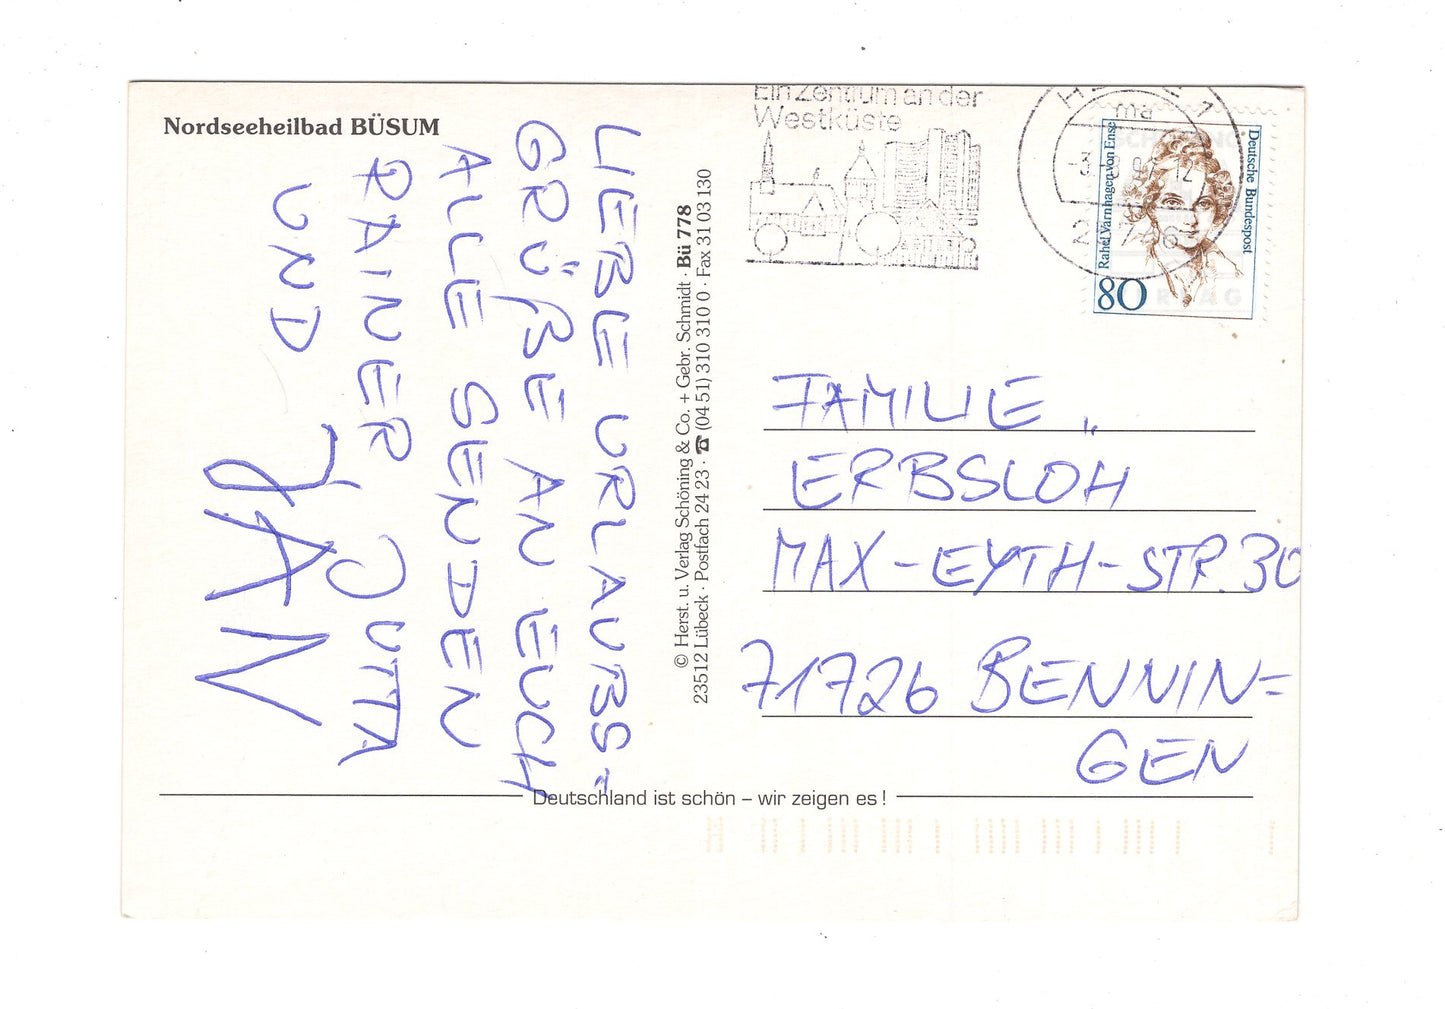 Nordseeheilbad BÜSUM
LIEBE URLAUBS-
GRÜßE AN EUCH
ALLE SENDEN
RAINER JUTTA
UND JAN
© Herst. u. Verlag Schöning & Co. + Gebr. Schmidt · Bü 778
23512 Lübeck · Postfach 24 23 · ☎ (04 51) 310 310 0 · Fax 31 03 130
Ein Zentrum an der
Westküste
ma
Rahel Varnhagen von Ense
Deutsche Bundespost
80
FAMILIE
ERBSLÖH
MAX-EYTH-STR. 30
71726 BENNIN=
GEN
Deutschland ist schön – wir zeigen es !